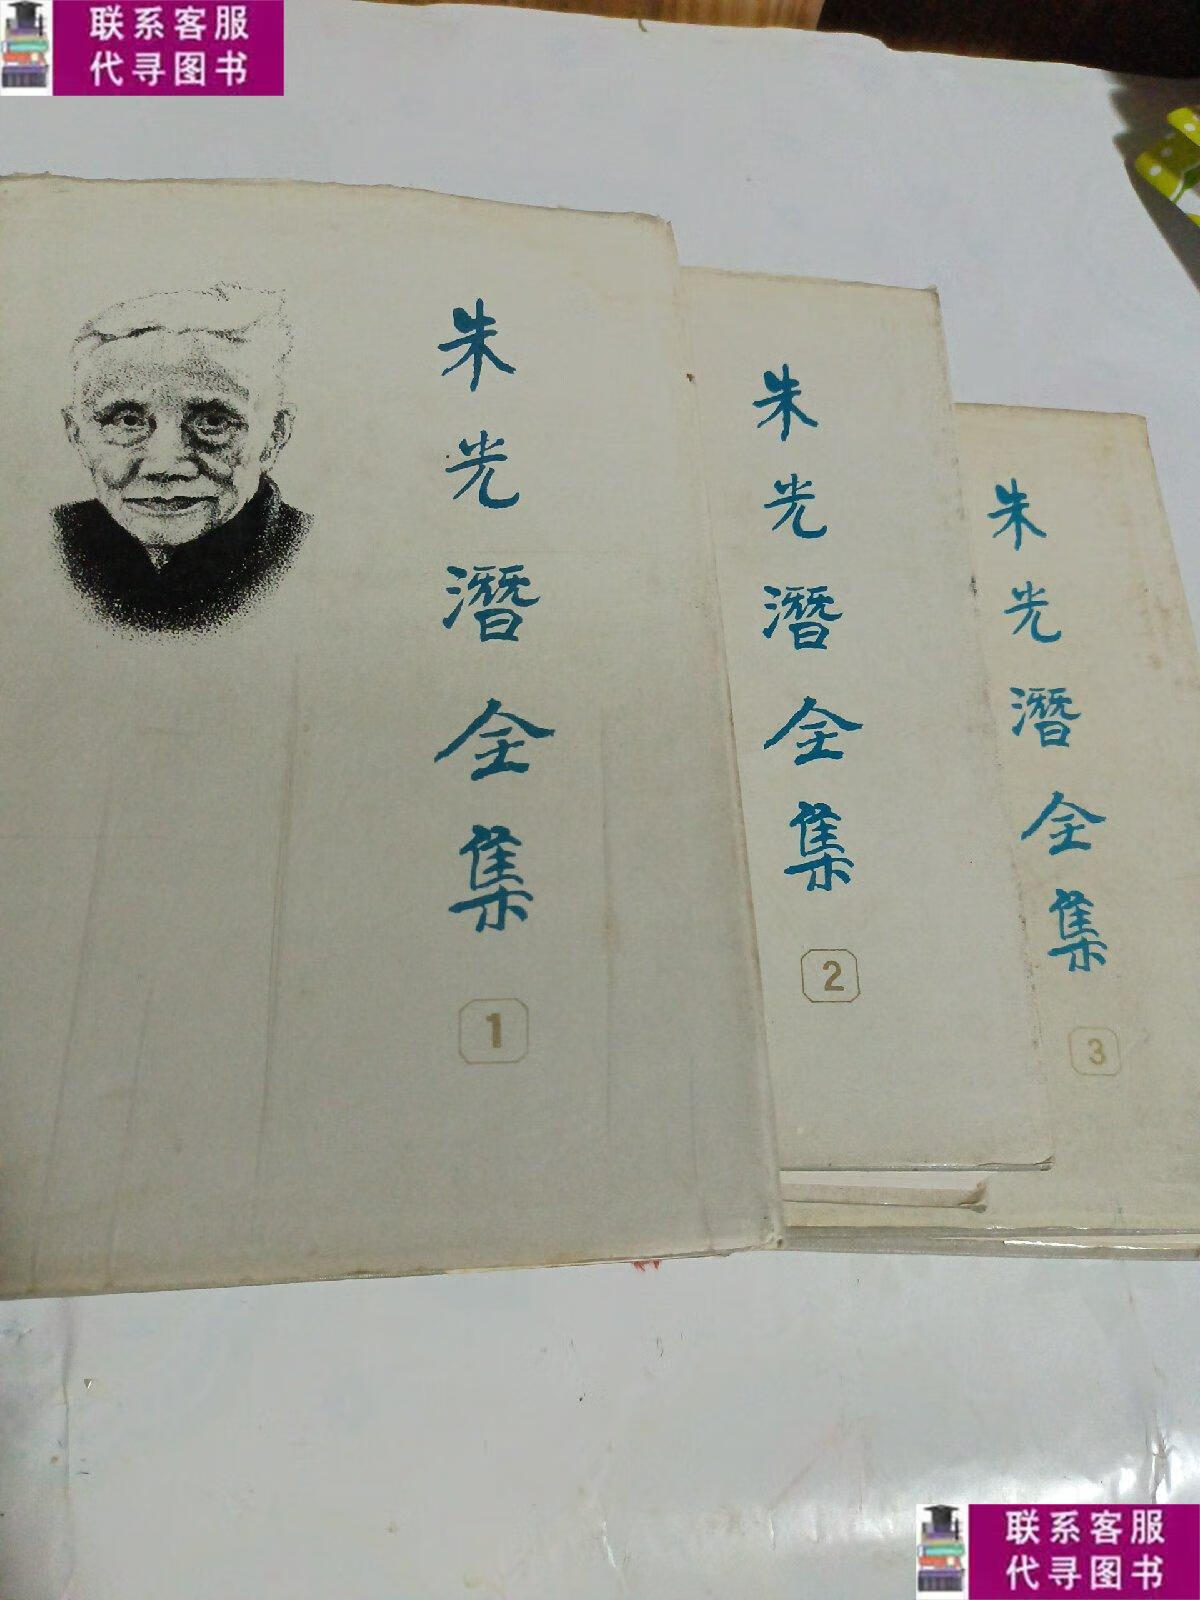 联系客服
代寻图书
朱光潜全集
1
朱光潜全集
2
朱光潜全集
3
联系客服
代寻图书